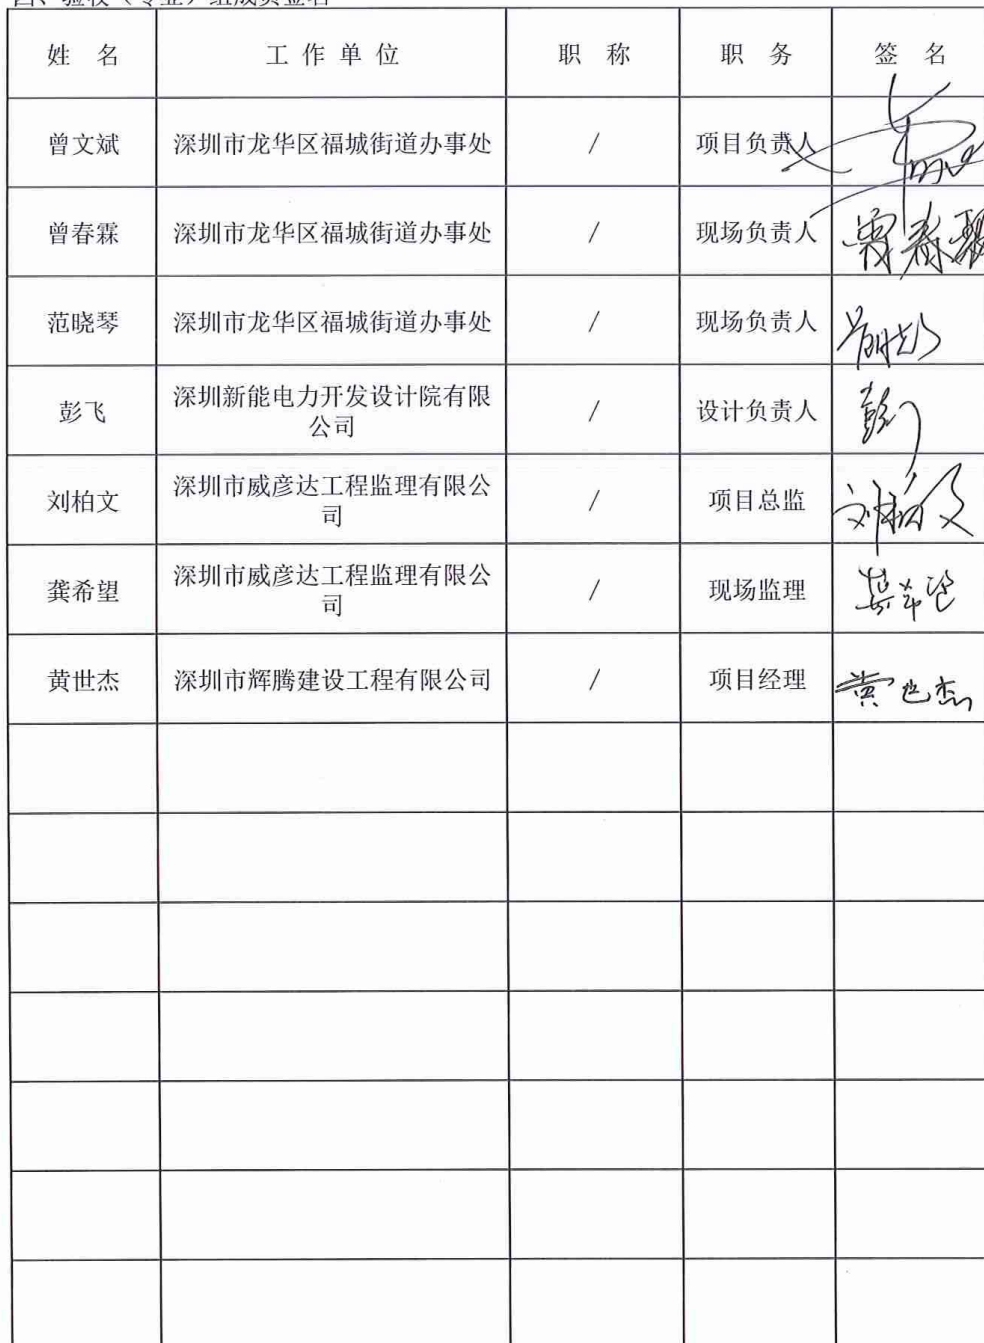 四、验收（专业）组成员签名
姓 名 工 作 单 位 职 称 职 务 签 名
曾文斌 深圳市龙华区福城街道办事处 / 项目负责人
曾春霖 深圳市龙华区福城街道办事处 / 现场负责人 曾春霖
范晓琴 深圳市龙华区福城街道办事处 / 现场负责人
彭飞 深圳新能电力开发设计院有限
公司 / 设计负责人 彭飞
刘柏文 深圳市威彦达工程监理有限公
司 / 项目总监 刘柏文
龚希望 深圳市威彦达工程监理有限公
司 / 现场监理 龚希望
黄世杰 深圳市辉腾建设工程有限公司 / 项目经理 黄世杰